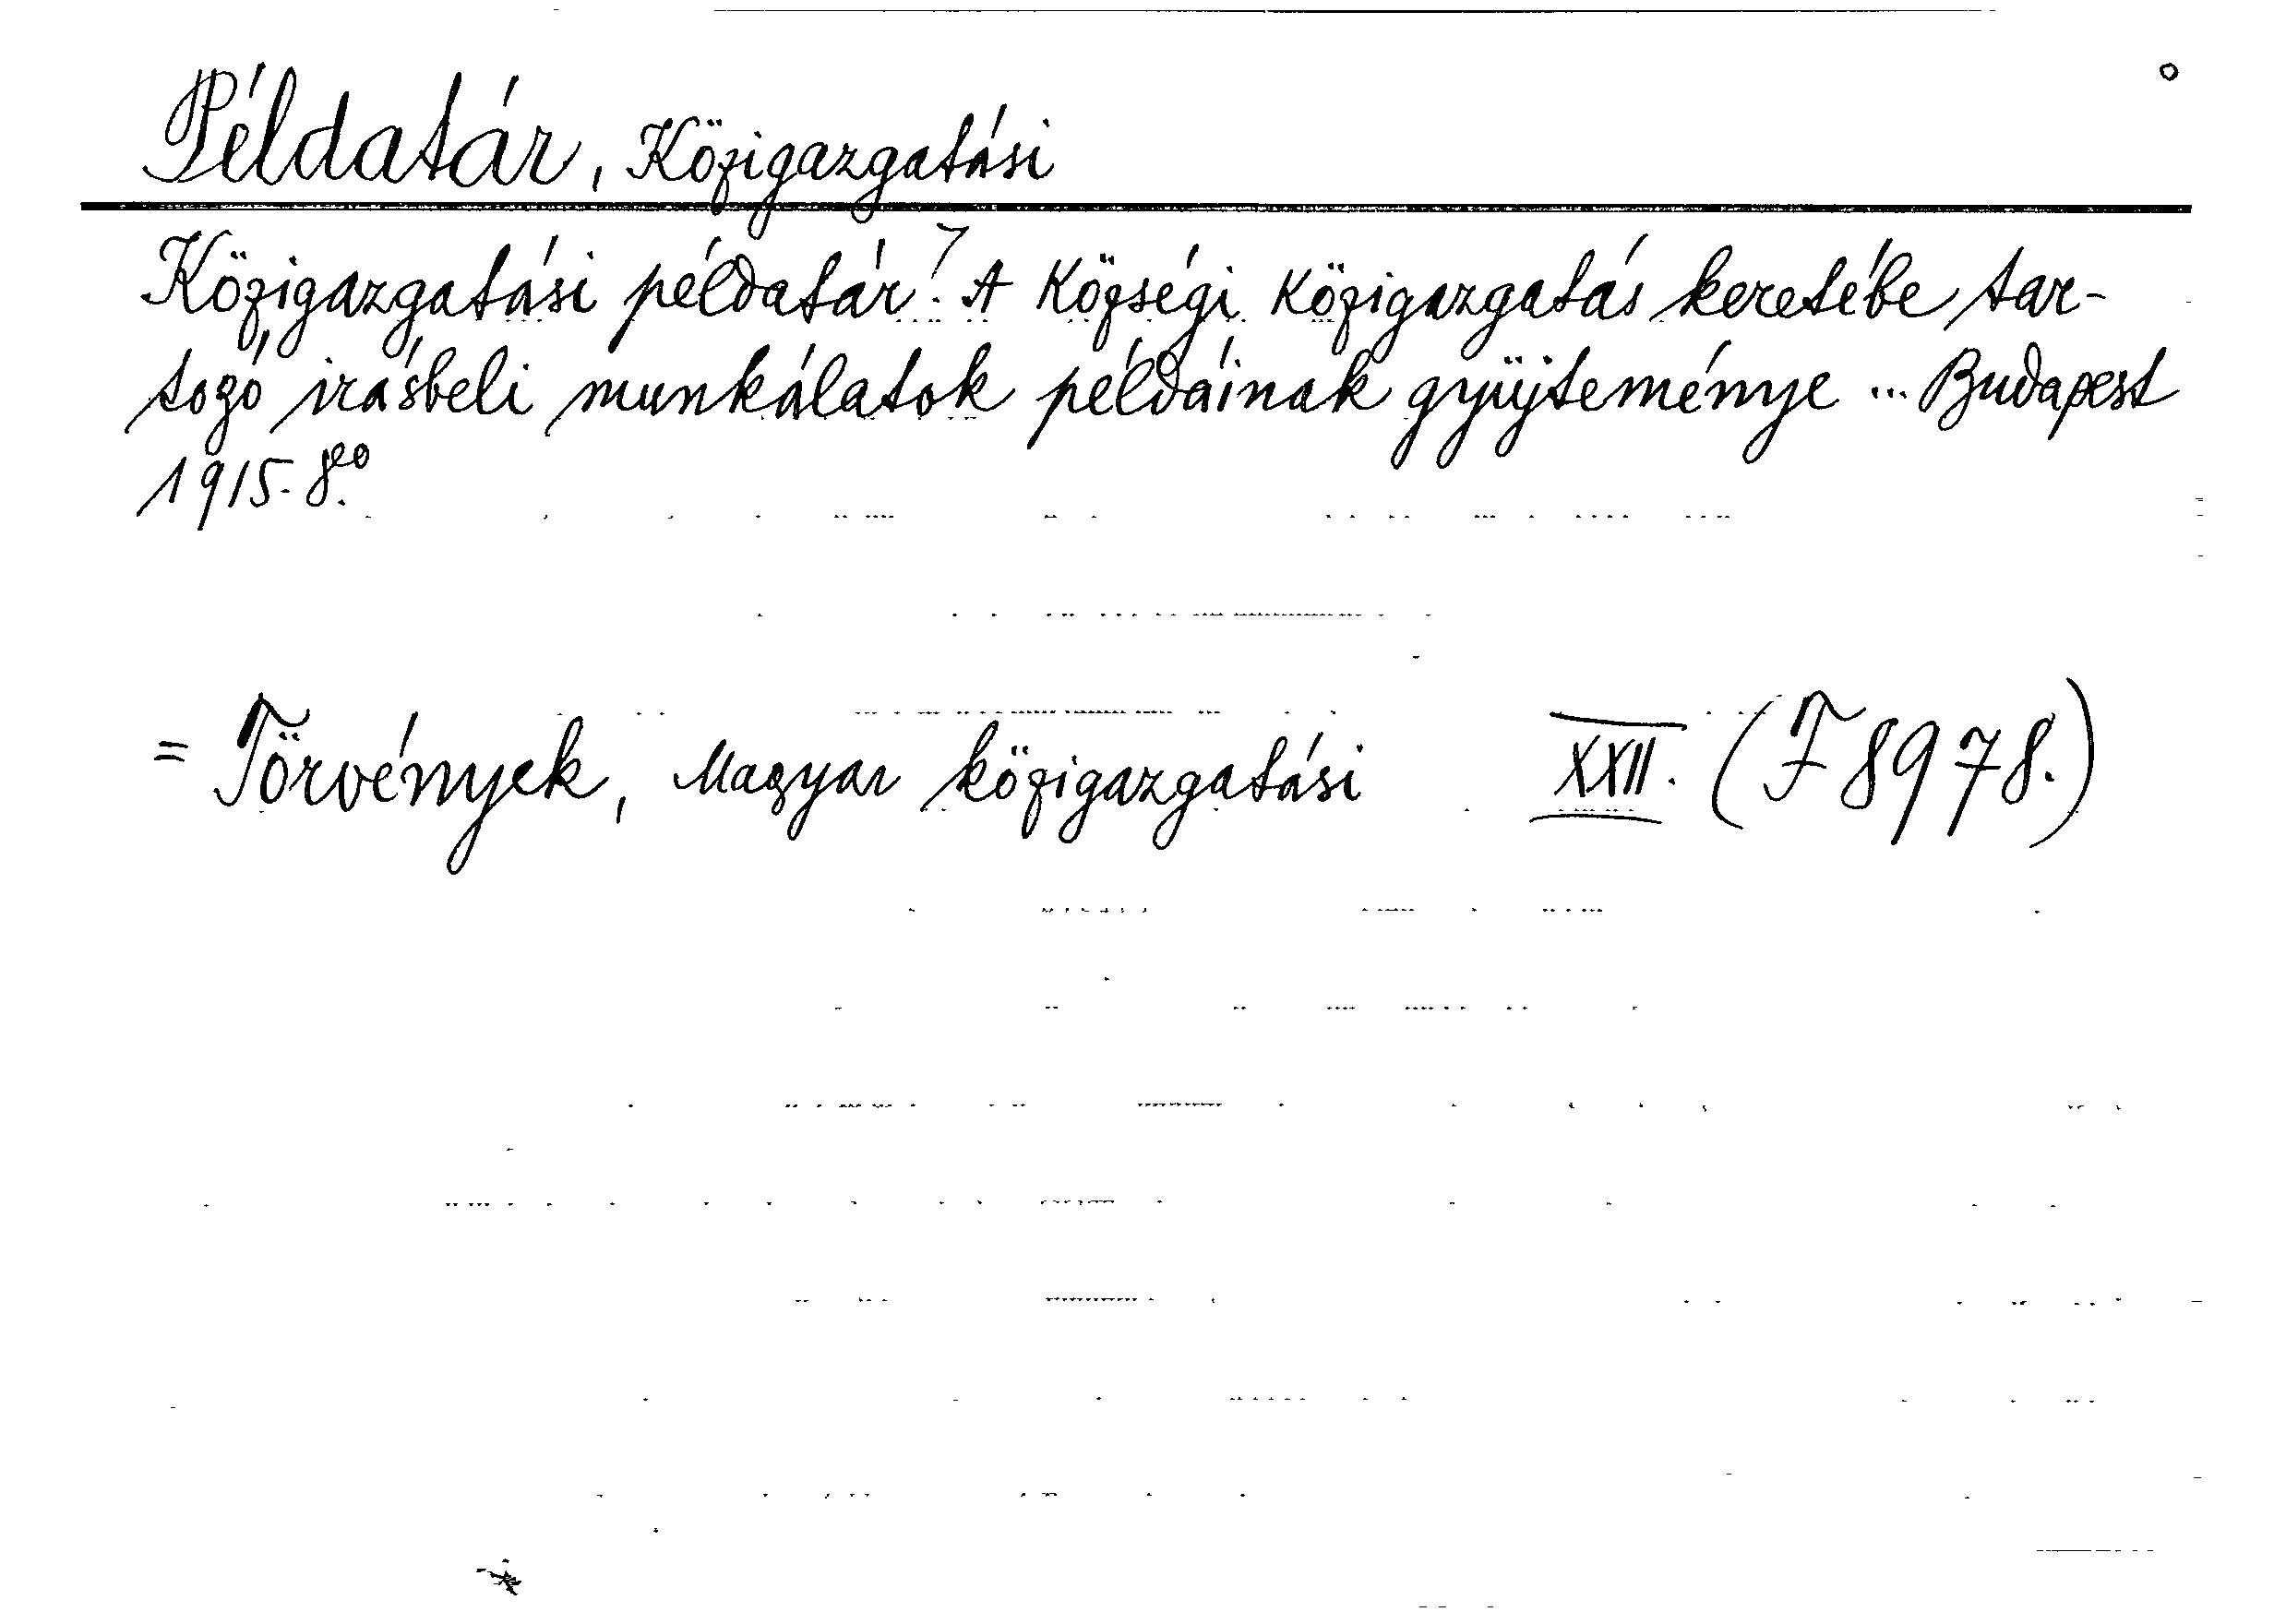 Példatár, Közigazgatási
Közigazgatási példatár. A községi közigazgatás keretébe tar-
tozó irásbeli munkálatok példáinak gyüjteménye ... Budapest
1915. 8º.
= Törvények, Magyar közigazgatási XXII. (F 8978.)